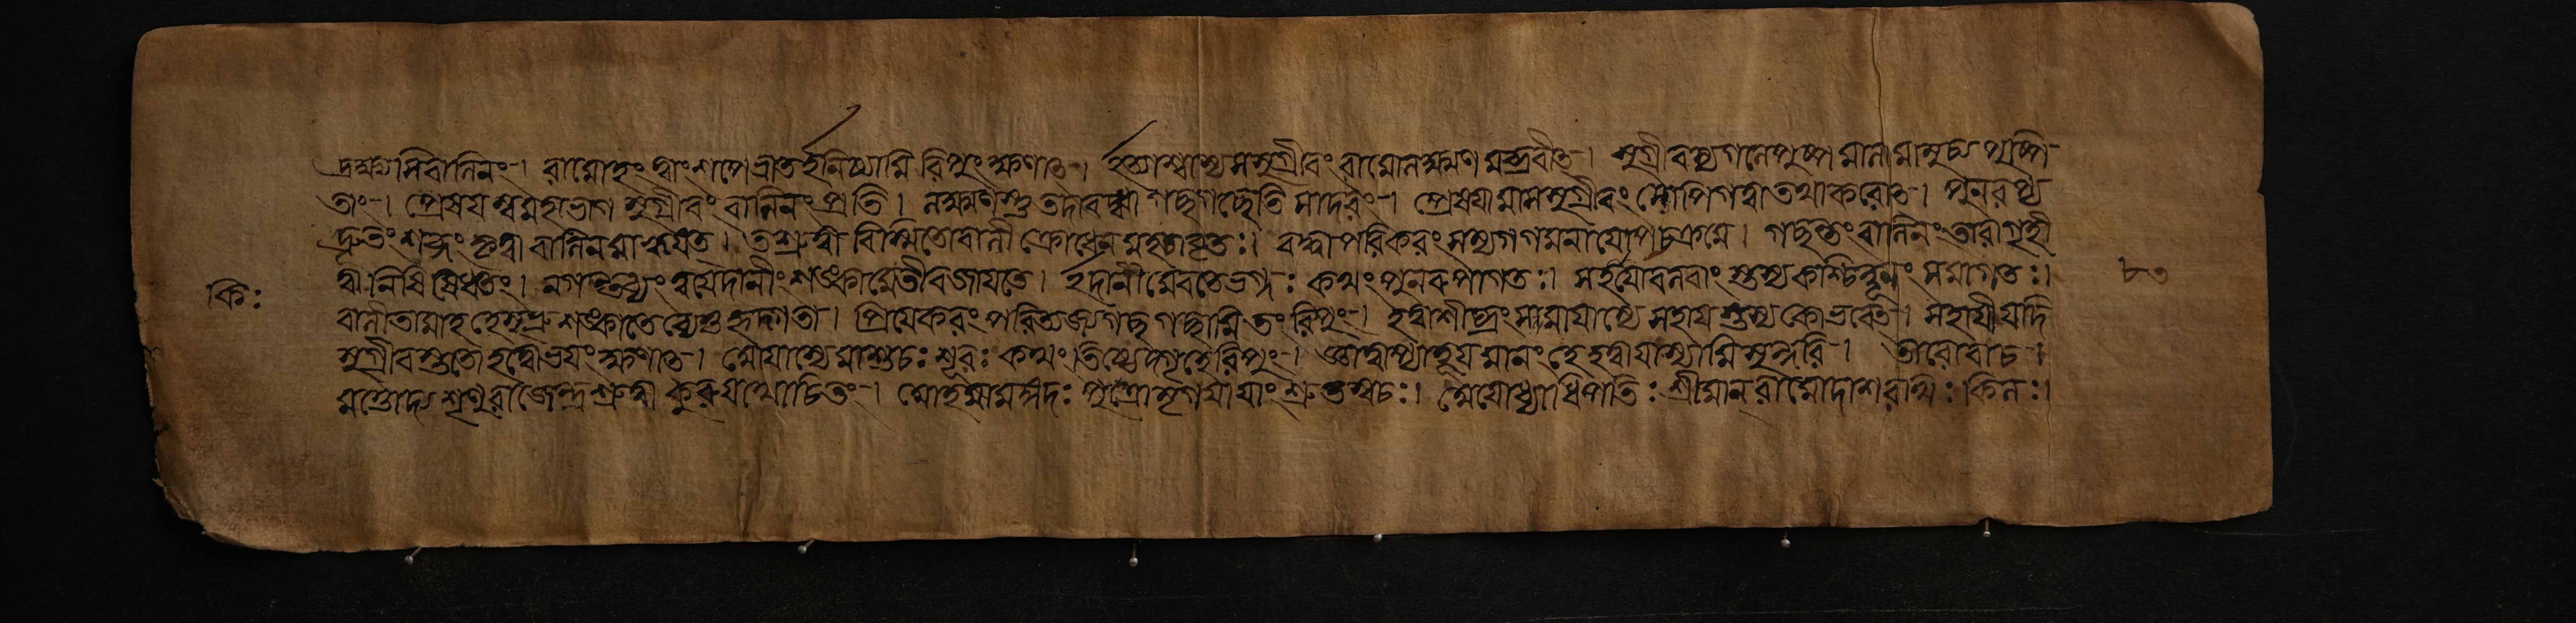 দ্রক্ষ্যসিবালিনং। রামোহং ত্বাংশপেভ্রাতর্হনিষ্যামি রিপুংক্ষণাৎ। ইত্যাশ্বাস্যসসুগ্রীবংরামোলক্ষ্মণমব্রবীৎ। সুগ্রীবস্যগলেপুষ্পমালামামুচ্যপুষ্পি
তাং। প্রেষযস্বমহাভাগসুগ্রীবংবালিনংপ্রতি। লক্ষ্মণস্তুতদাবদ্ধ্বাগচ্ছগচ্ছেতিসাদরং। প্রেষযামাসসুগ্রীবংসোপিগত্বাতথাকরোৎ। পুনরপ্য
দ্ভুতংশব্দংকৃত্বাবালিনমাহ্বযৎ। তশ্রুত্বাবিস্মিতোবালীক্রোধেনমহতাবৃতঃ। বদ্ধ্বাপরিকরংসম্যগ্গমনাযোপচক্রমে। গচ্ছন্তংবালিনংতারাগৃহী
ত্বানিষিষেধতং। নগন্তব্যংত্বযেদানীংশঙ্কামেতীবজাযতে। ইদানীমেবতেভগ্নঃ কথংপুনরুপাগতঃ। সহাযোবলবাংস্তস্যকশ্চিন্নূনংসমাগতঃ।
বালীতামাহহেসুভ্রুশঙ্কাতেব্যেতুতদ্গতা। প্রিযেকরংপরিত্যজ্যগচ্ছগচ্ছামিতংরিপুং। হত্বাশীঘ্রংসমাযাস্যেসহাযস্তস্যকোভবেৎ। সহাযোযদি
সুগ্রীবস্ততোহত্বোভযংক্ষণাৎ। আযাস্যেমাশুচঃশূরঃ কথংতিষ্ঠেদ্গৃহেরিপুং। জ্ঞাত্বাপ্যাহূযমানংহিহত্বাযাস্যামিসুন্দরি। তারোবাচ।
শৃণুরাজেন্দ্রশ্রুত্বাকুরুযথোচিতং। আহমামঙ্গদঃ পুত্রোমৃগযাযাংশ্রুতম্বচঃ। অযোধ্যাধিপতিঃ শ্রীমান্রামোদাশরথিঃ কিলঃ।
কিঃ
৮৩